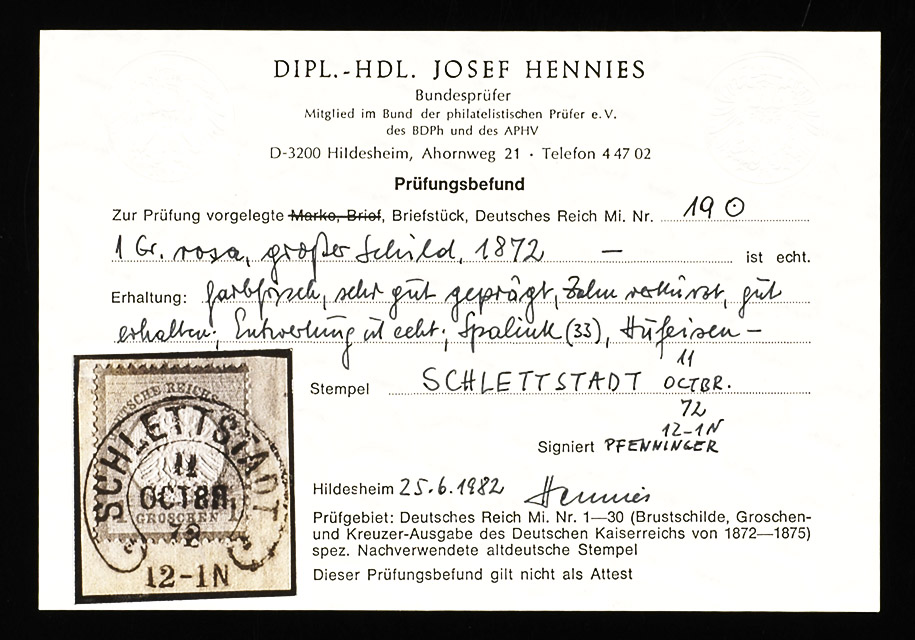 DIPL.-HDL. JOSEF HENNIES
Bundesprüfer
Mitglied im Bund der philatelistischen Prüfer e.V.
des BDPh und des APHV
D-3200 Hildesheim, Ahornweg 21 · Telefon 4 47 02
Prüfungsbefund
Zur Prüfung vorgelegte Marke, Brief, Briefstück, Deutsches Reich Mi. Nr. 19 ⊙
1 Gr. rosa, großer Schild, 1872 — ist echt.
Erhaltung: farbfrisch, sehr gut geprägt, Zahn verkürzt, gut
erhalten; Entwertung ist echt; Spalink (33), Hufeisen-
Stempel SCHLETTSTADT 11
OCTBR.
72
12-1N
Signiert PFENNINGER
Hildesheim 25.6.1982 Hennies
Prüfgebiet: Deutsches Reich Mi. Nr. 1—30 (Brustschilde, Groschen-
und Kreuzer-Ausgabe des Deutschen Kaiserreichs von 1872—1875)
spez. Nachverwendete altdeutsche Stempel
Dieser Prüfungsbefund gilt nicht als Attest
SCHLETTSTADT
11
OCTBR
72
12-1N
GROSCHEN